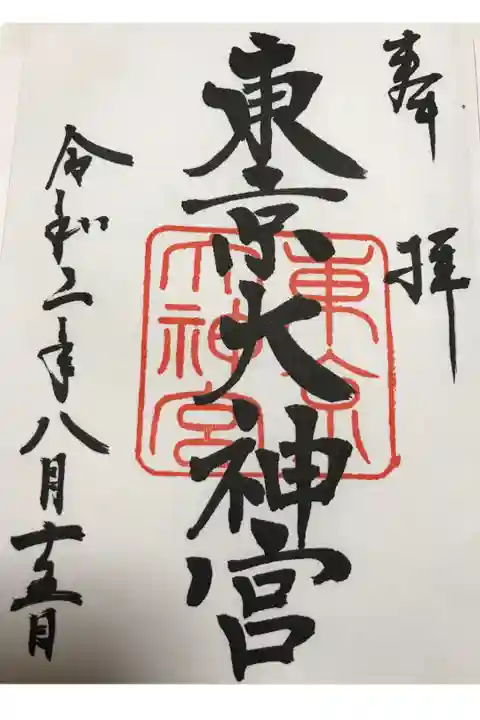 奉拝
東京大神宮
東京大神宮
令和二年八月十五日